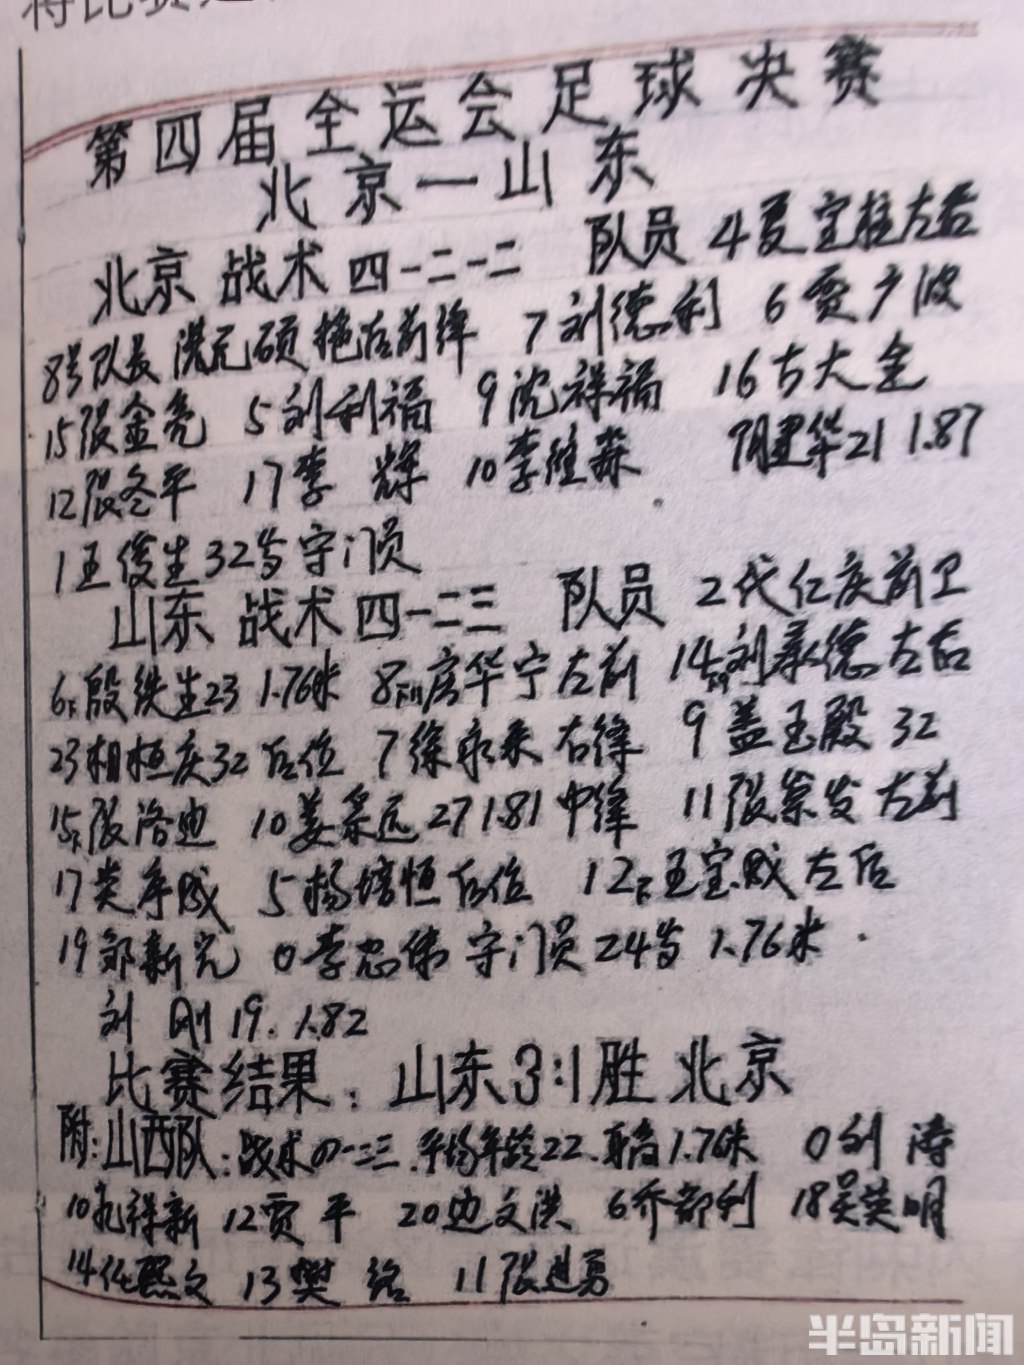 将比赛
第四届全运会足球决赛
北京一山东
北京 战术四-二-二 队员 4夏宝柱左后
8号队长 洪元硕拖后前锋 7刘德利 6贾广波
15张金亮 5刘利福 9沈祥福 16古大全
12张冬平 17李辉 10李维淼 阴建华21 1.87
1王俊生32岁守门员
山东 战术四-二三 队员 2代仁庆前卫
6殷铁生23 1.76米 8房华宁左前 14刘承德左后
23相恒庆32后位 7徐永来右锋 9盖玉殿32
15张洛迪 10姜采远27 1.81中锋 11张宗发左前
17类序成 5杨培恒后位 12王宝成左后
19邹新光 0李忠伟守门员24岁 1.76米.
刘刚19. 1.82
比赛结果:山东3:1胜北京
附:山西队:战术四-二三.平均年龄22.身高1.76米 0刘涛
10孔祥新 12贾平 20边文洪 6乔都利 18吴英明
14任熙文 13樊铭 11张进勇
半岛新闻